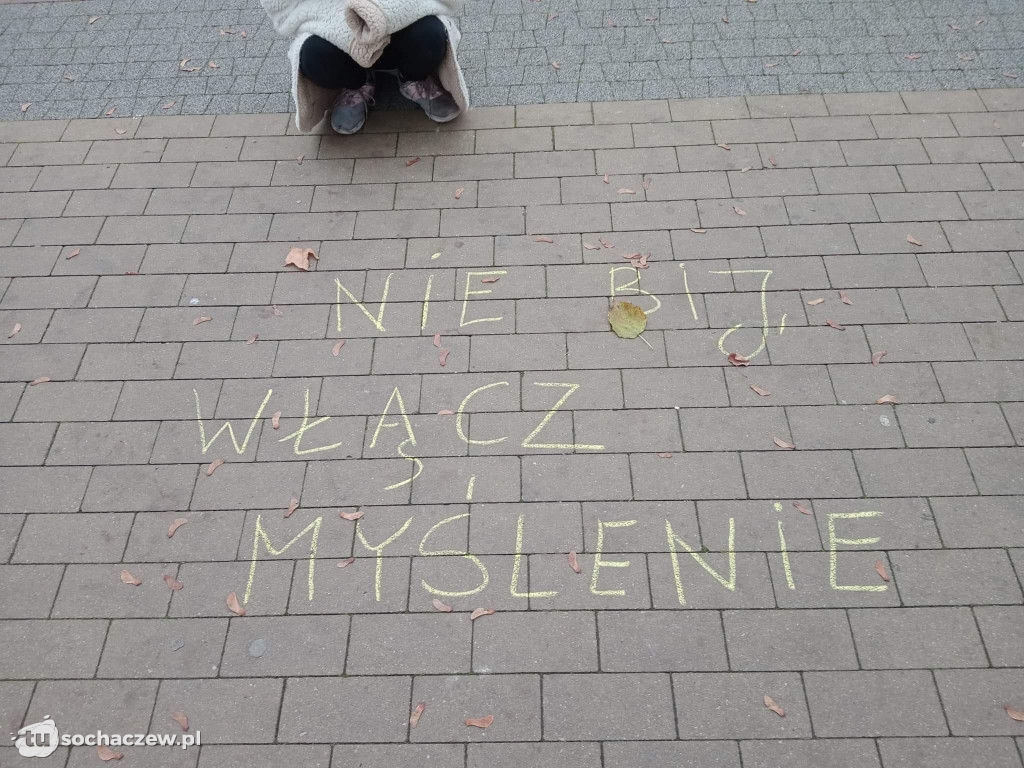 NIE BIJ,
WŁĄCZ
MYŚLENIE
tu sochaczew.pl